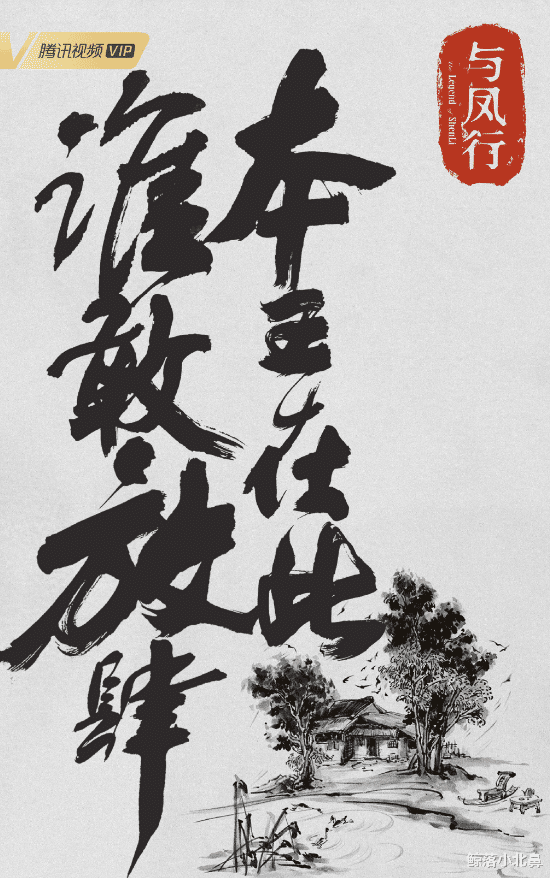 腾讯视频 VIP
与凤行
The Legend of ShenLi
本王在此
谁敢放肆
鲸落小北鼻